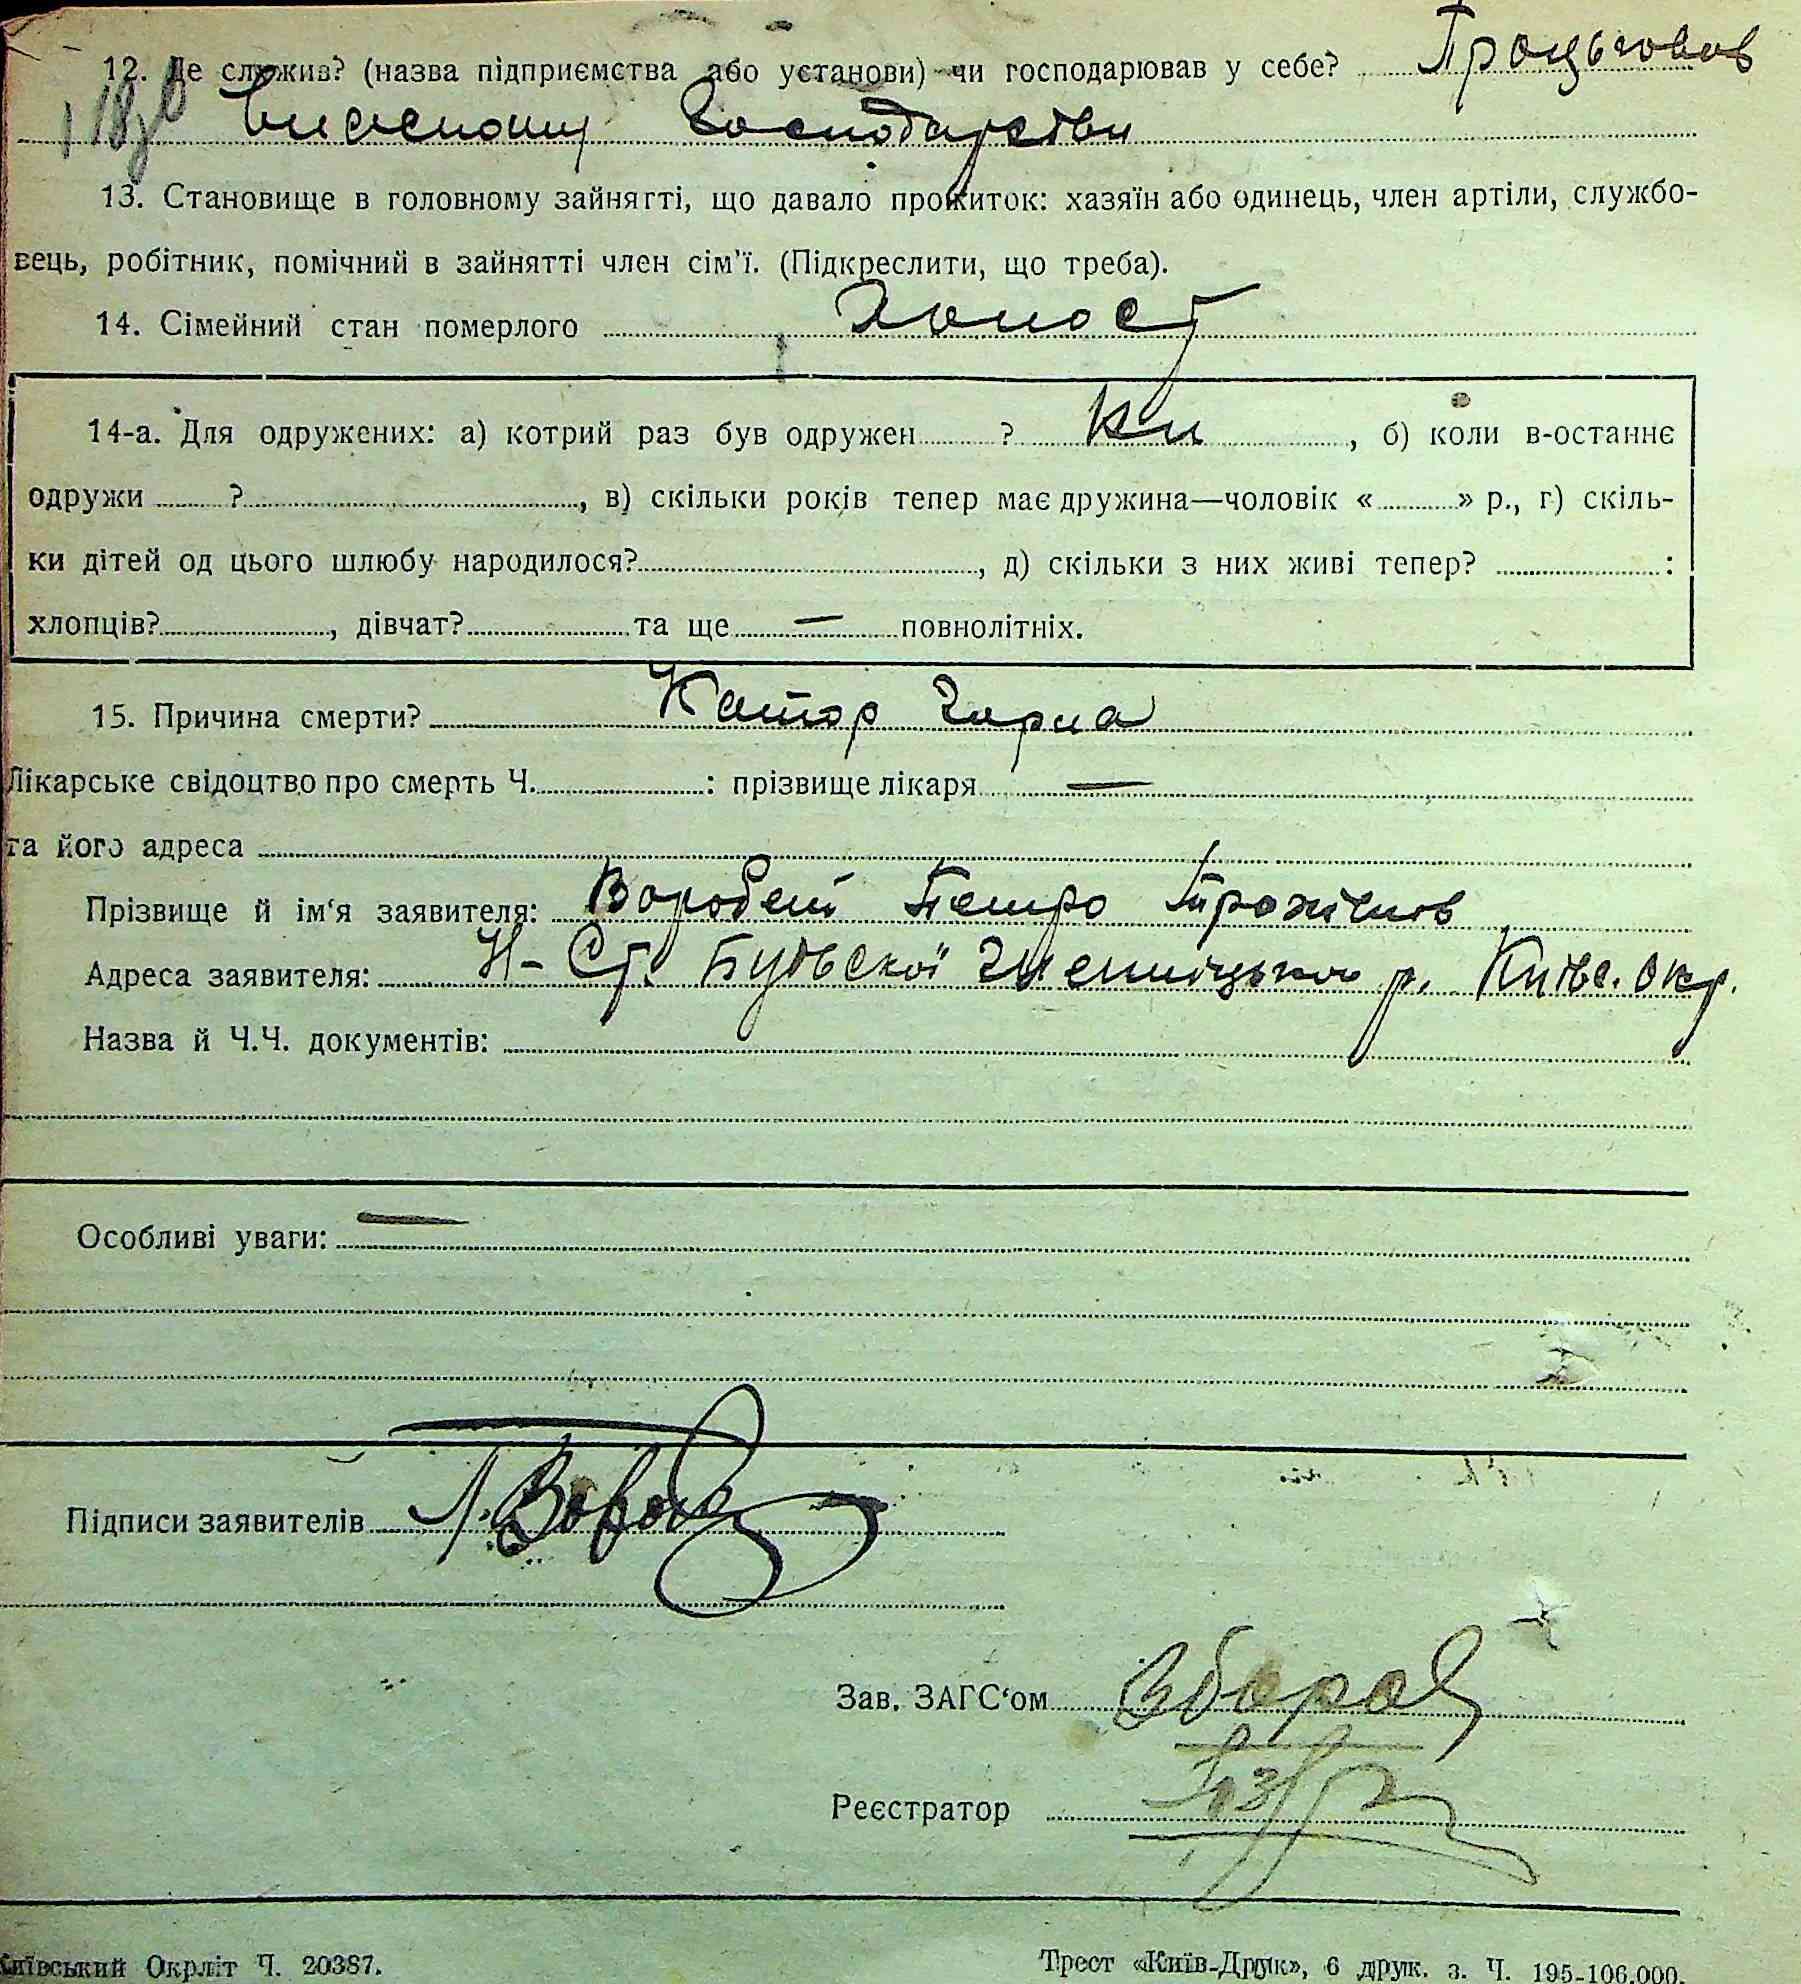 12. Де служив? (назва підприємства або установи) чи господарював у себе? Працював
118
в сіьському господарстві
13. Становище в головному зайнятті, що давало прожиток: хазяїн або одинець, член артіли, службо-
вець, робітник, помічний в зайнятті член сім'ї. (Підкреслити, що треба).
14. Сімейний стан померлого Холост
14-а. Для одружених: а) котрий раз був одружен ? , б) коли в-останнє
одружи ? , в) скільки років тепер має дружина—чоловік « » р., г) скіль-
ки дітей од цього шлюбу народилося? , д) скільки з них живі тепер? :
хлопців? , дівчат? та ще — повнолітніх.
15. Причина смерти? Катор
Лікарське свідоцтво про смерть Ч. : прізвище лікаря —
та його адреса
Прізвище й ім'я заявителя: Воробей Петро
Адреса заявителя: Н-Ст. Будьскої р. Київс. окр.
Назва й Ч.Ч. документів:
Особливі уваги: —
Підписи заявителів
Зав. ЗАГС'ом
Реєстратор
Київський Окрліт Ч. 20387. Трест «Київ-Друк», 6 друк. з. Ч. 195-106.000.